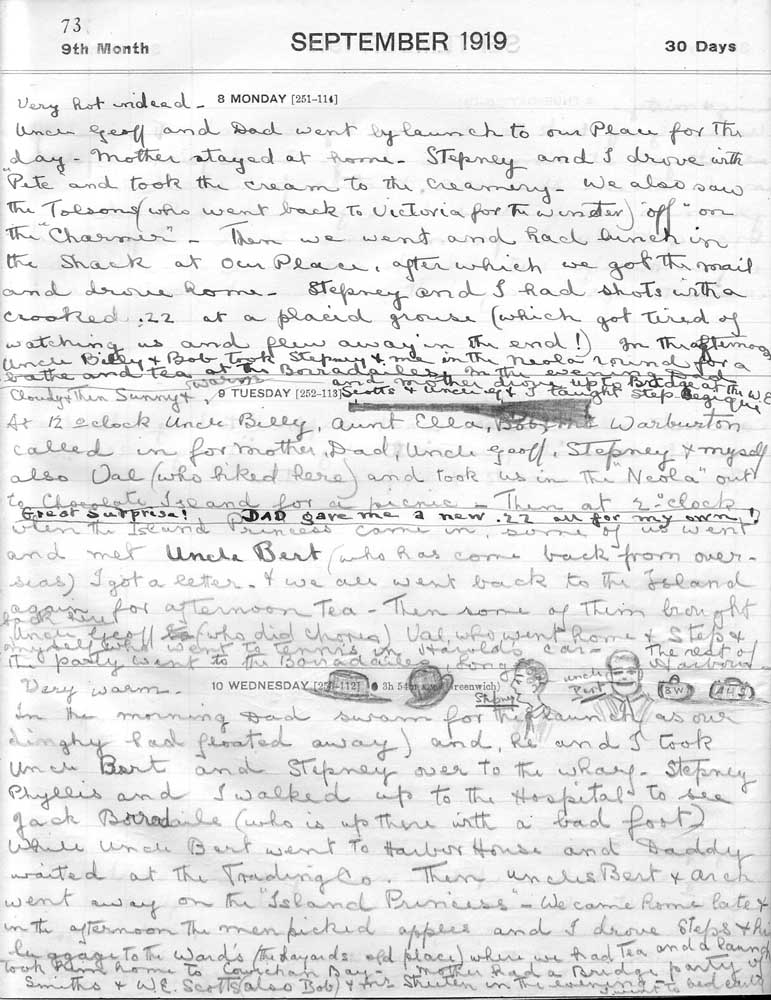 73
9th Month SEPTEMBER 1919 30 Days
Very hot indeed - 8 MONDAY [251-114]
Uncle Geoff and Dad went by launch to our Place for the
day - Mother stayed at home - Stepney and I drove with
"Pete" and took the cream to the creamery - We also saw
the Tolsons (who went back to Victoria for the winter) "off" on
the "Charmer" - Then we went and had lunch in
the Shack at Our Place, after which we got the mail
and drove home - Stepney and I had shots with a
crooked .22 at a placid grouse (which got tired of
watching us and flew away in the end!) In the afternoon
Uncle Billy & Bob took Stepney & me in the Neola round for a
bathe and tea at the Borradailes. In the evening Dad
and Mother drove up to Bridge at the W E
Cloudy & then Sunny & warm 9 TUESDAY [252-113] Scotts & Uncle G & I taught Step Bezique
At 12 oclock Uncle Billy, Aunt Ella, Warburton
called in for Mother, Dad, Uncle Geoff, Stepney & myself
also Val (who hiked here) and took us in the "Neola" out
to Chocolate Island for a picnic - Then at 2 "clock
Great Surprise! DAD gave me a new .22 all for my own!
when the Island Princess came in, some of us went
and met Uncle Bert (who has come back from over-
seas) I got a letter - & we all went back to the Island
again for afternoon Tea - Then some of them brought
back here
Uncle Geoff (who did chores) Val who went home & Step &
myself who went to tennis in Harold's car - The rest of
the party went to the Borradailes, Long Harbour -
Very warm - 10 WEDNESDAY [253-112] 3h 54m Greenwich)
Stepney uncle Bert BW AHS
In the morning Dad swam for the launch (as our
dinghy had floated away) and, he and I took
Uncle Bert and Stepney over to the wharf - Stepney
Phyllis and I walked up to the Hospital to see
Jack Borradaile (who is up there with a bad foot)
While Uncle Bert went to Harbor House and Daddy
waited at the Trading Co. Then uncles Bert & Arch
went away on the "Island Princess" - We came home late &
in the afternoon the men picked apples and I drove Steps & his
luggage to the Ward's (the Layards old place) where we had Tea and a launch
took him home to Cowichan Bay - Mother had a Bridge party of
Smiths & W.E. Scotts (also Bob) & Mrs Streeten in the evening - went to bed early